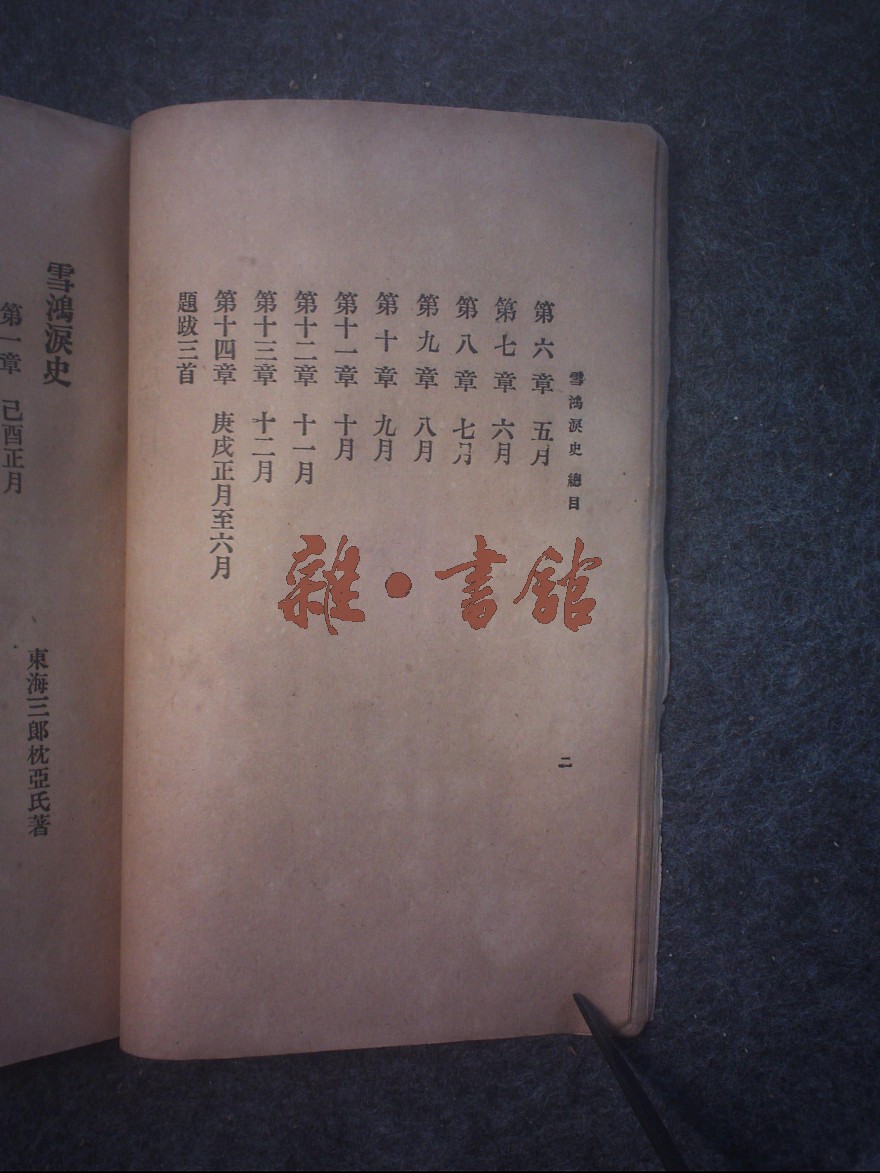 雪鴻淚史 總目
第六章 五月
第七章 六月
第八章 七月
第九章 八月
第十章 九月
第十一章 十月
第十二章 十一月
第十三章 十二月
第十四章 庚戌正月至六月
題跋三首
二
雜·書館
雪鴻淚史
東海三郎枕亞氏著
第一章 己酉正月